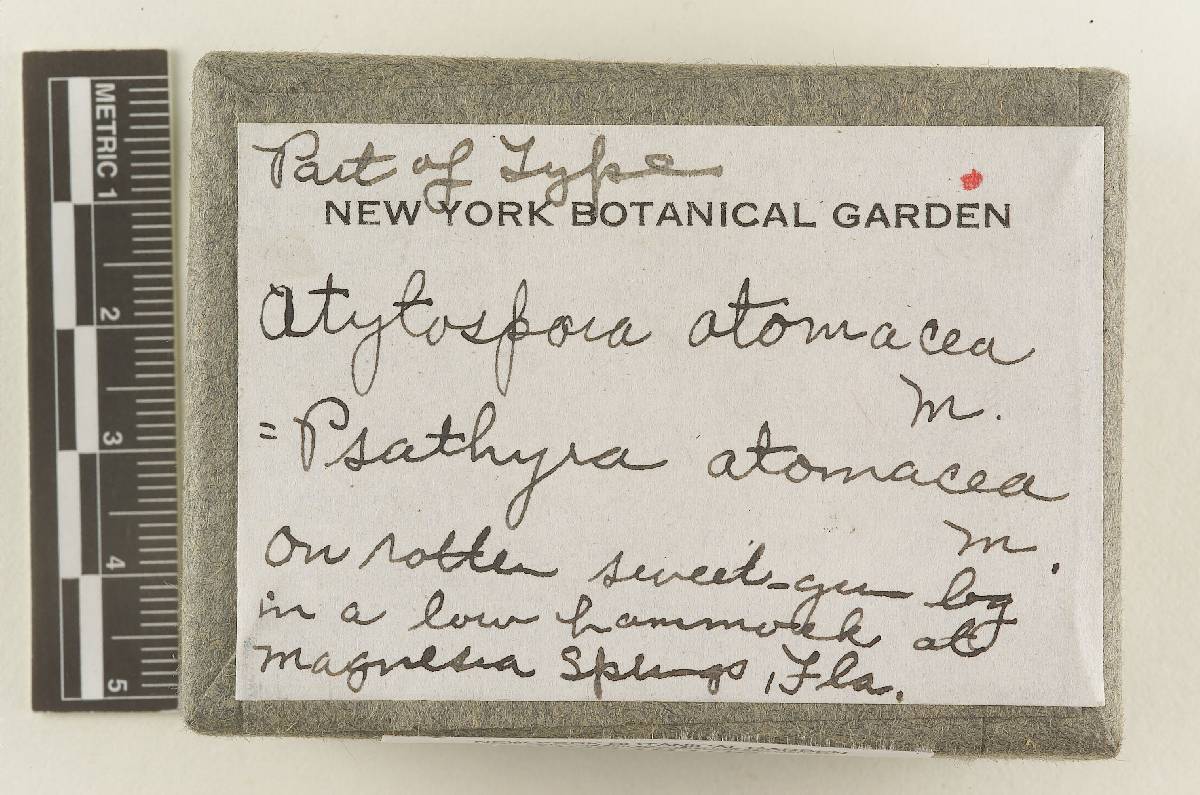 Part of Type
NEW YORK BOTANICAL GARDEN
Atytospora atomacea
M.
= Psathyra atomacea
M.
On rotten sweet-gum log
in a low hammock at
Magnesia Springs, Fla.
METRIC 1
2
3
4
5
NEW YORK BOTANICAL GARDEN